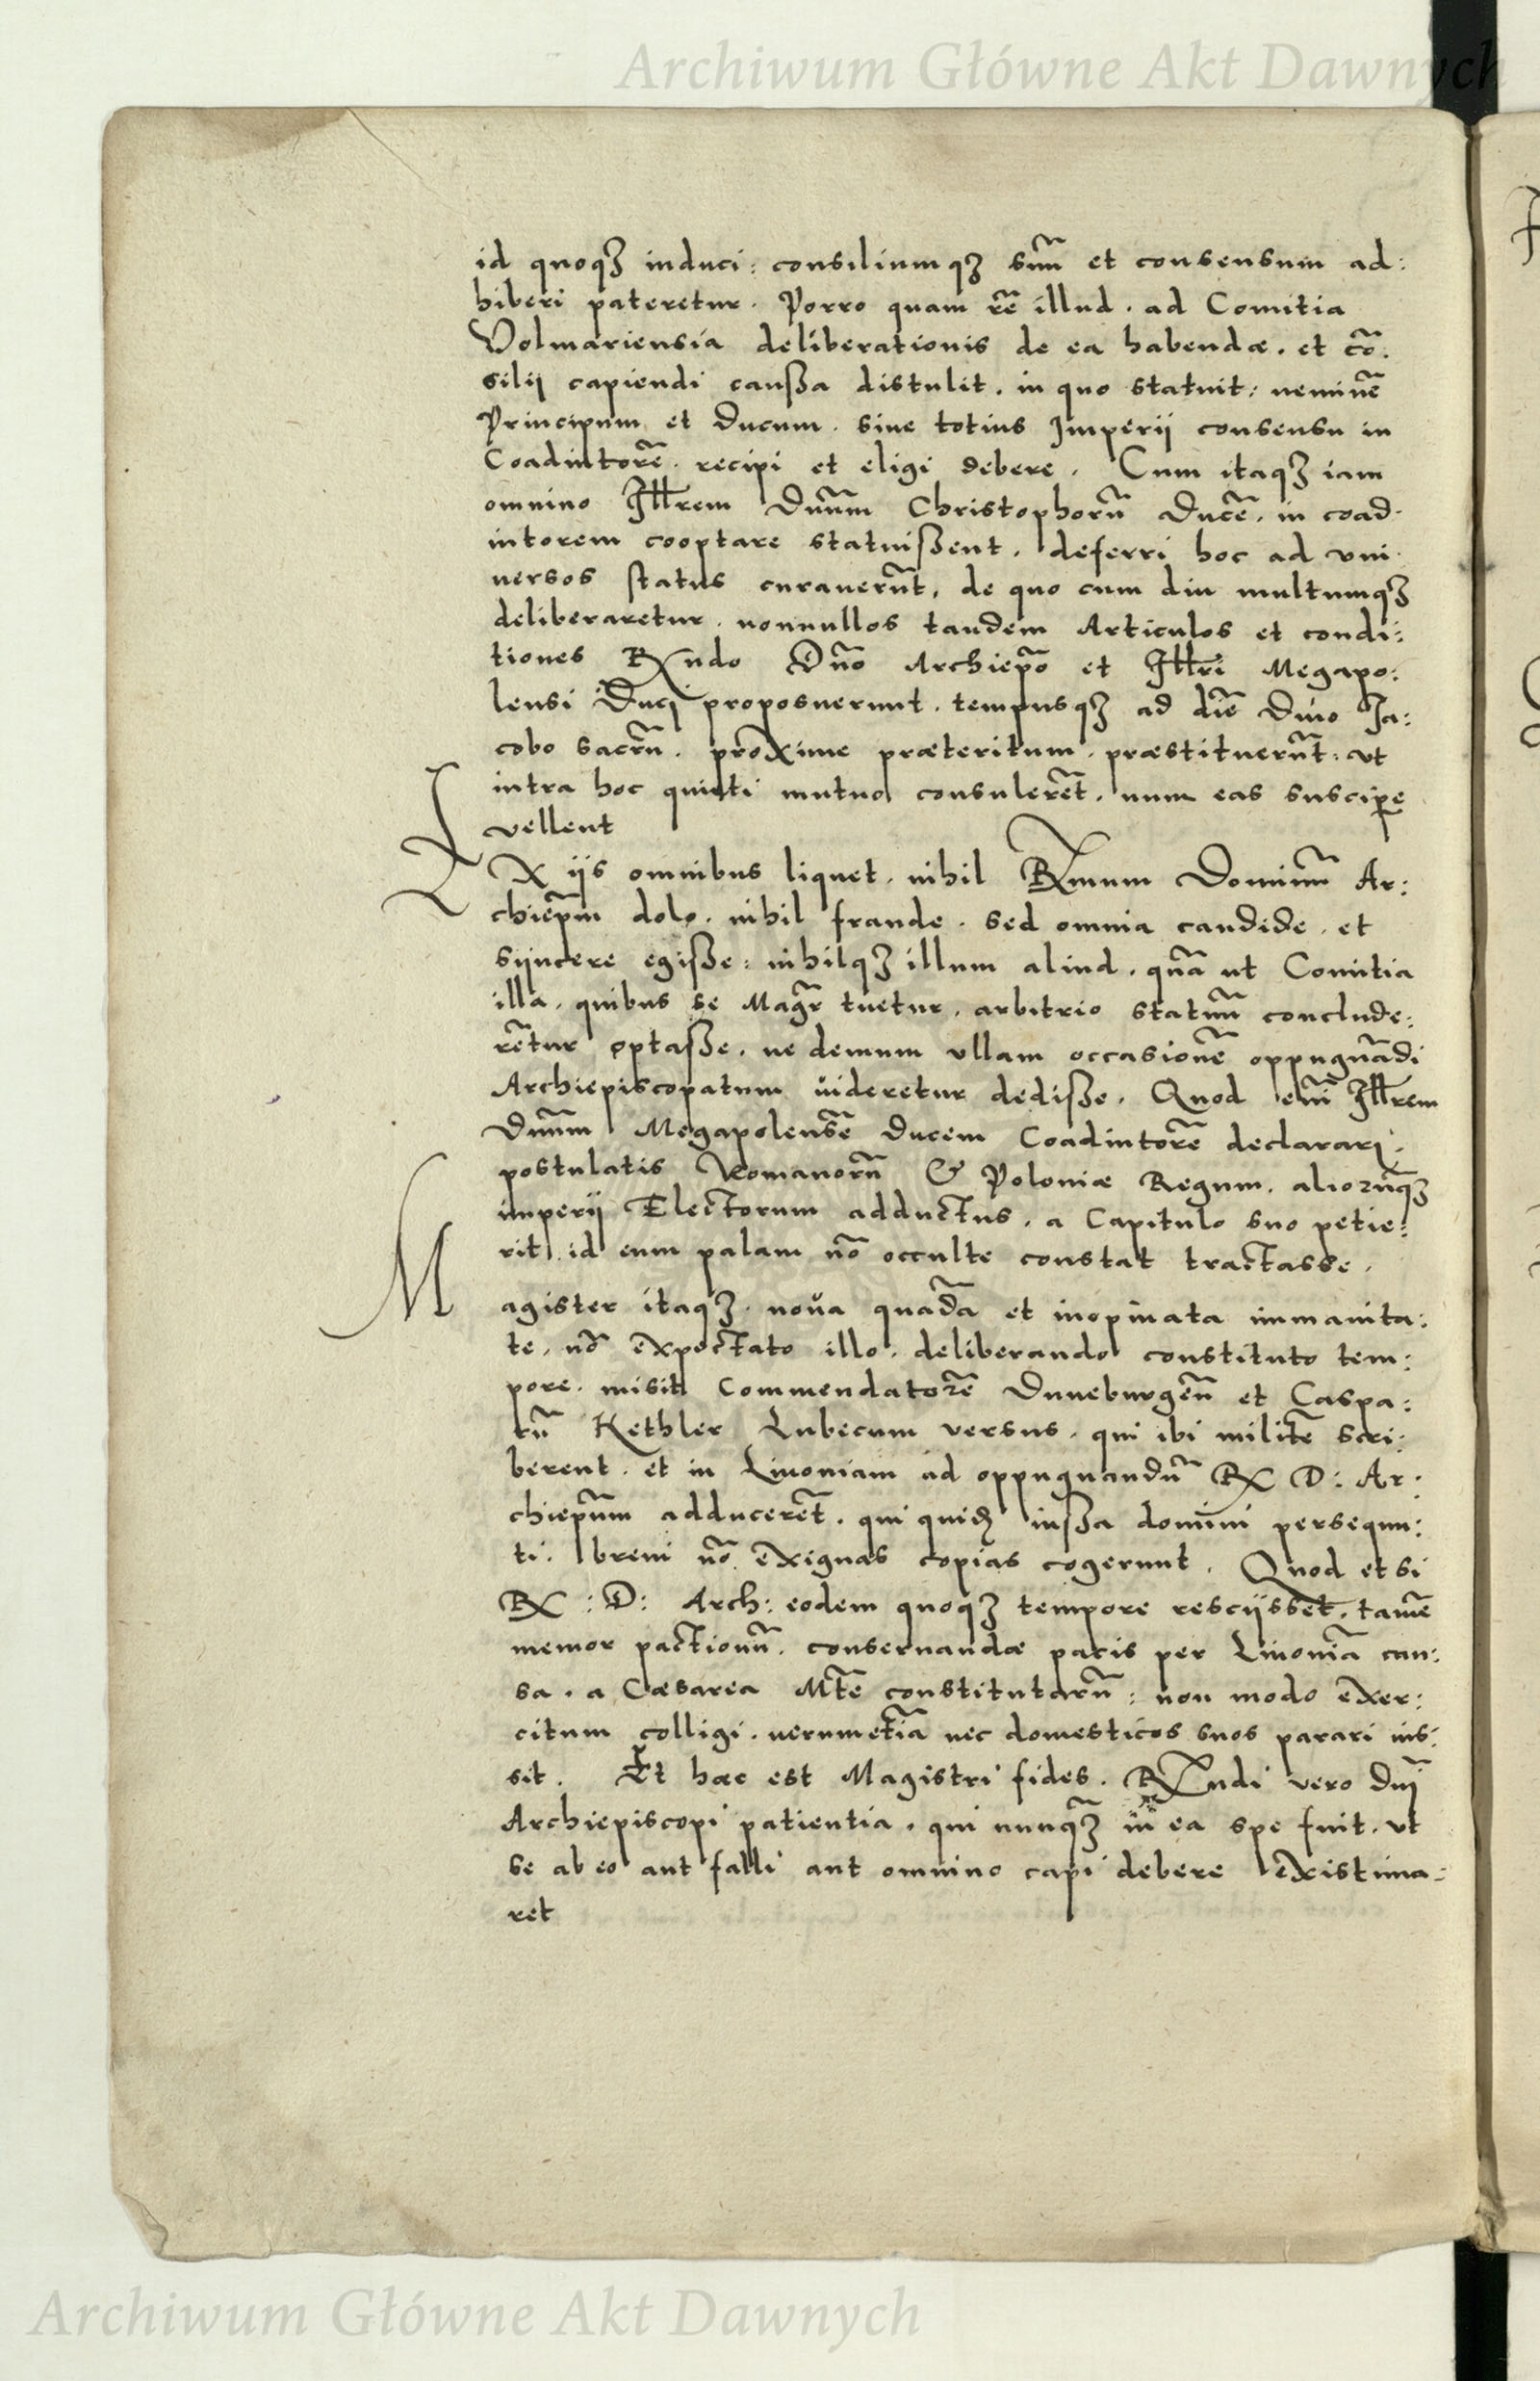 Archiwum Główne Akt Dawnych
id quoqꝫ induci: consiliumqꝫ suū et consensum ad:
hiberi pateretur. Porro quam rē illud. ad Comitia
Volmariensia deliberationis de ea habendæ. et cō:
silij capiendi caußa distulit. in quo statuit: neminē
Principum et Ducum. sine totius Imperij consensu in
Coadiutorē. recipi et eligi debere. Cum itaqꝫ iam
omnino Illrem Dnūm Christophorū Ducē. in coad:
iutorem cooptare statuißent. deferri hoc ad vni:
uersos status curauerūt, de quo cum diu multumqꝫ
deliberaretur. nonnullos tandem Articulos et condi:
tiones Rndo Dn̄o Archiep̄o et Illri Megapo:
lensi Duci proposuerunt. tempusqꝫ ad diē Diuo Ja:
cobo sacrū. proxime præteritum. præstituerūt: vt
intra hoc quieti mutuo consulerēt. num eas suscipe
vellent
EX ijs omnibus liquet. nihil Rmum Dominū Ar:
chiēpm dolo. nihil fraude. sed omnia candide. et
syncere egiße: nihilqꝫ illum aliud. quā ut Comitia
illa. quibus se Magr̄ tuetur. arbitrio statuū conclude:
rētur optaße. ne demum vllam occasionē oppugnādi
Archiepiscopatum uideretur dediße. Quod enī Illrem
Dnūm Megapolensē Ducem Coadiutorē declarari.
postulatis Romanorū & Poloniæ Regum. aliorūqꝫ
imperij Electorum adductus. a Capitulo suo petie:
rit. id eum palam nō occulte constat tractasse.
Magister itaqꝫ. noua quadā et inopinata immanita:
te. nō expectato illo. deliberando constituto tem:
pore. misit Commendatorē Duneburgēn et Caspa:
rū Kethler Lubecum versus. qui ibi militē scri:
berent. et in Liuoniam ad oppugnandū R D: Ar:
chiepūm adducerēt. qui quidē iußa domini persequu:
ti. breui nō exiguas copias cogerunt. Quod et si
R: D: Arch: eodem quoqꝫ tempore rescijsset. tamē
memor pactionū. conseruandæ pacis per Liuoniā cau:
sa. a Cæsarea Mtē constitutarū: non modo exer:
citum colligi. uerumetiā nec domesticos suos parari ius:
sit. Et hæc est Magistri fides. Rndi vero Dnī
Archiepiscopi patientia. qui nunqꝫ in ea spe fuit. vt
se ab eo aut falli aut omnino capi debere existima:
ret
Archiwum Główne Akt Dawnych